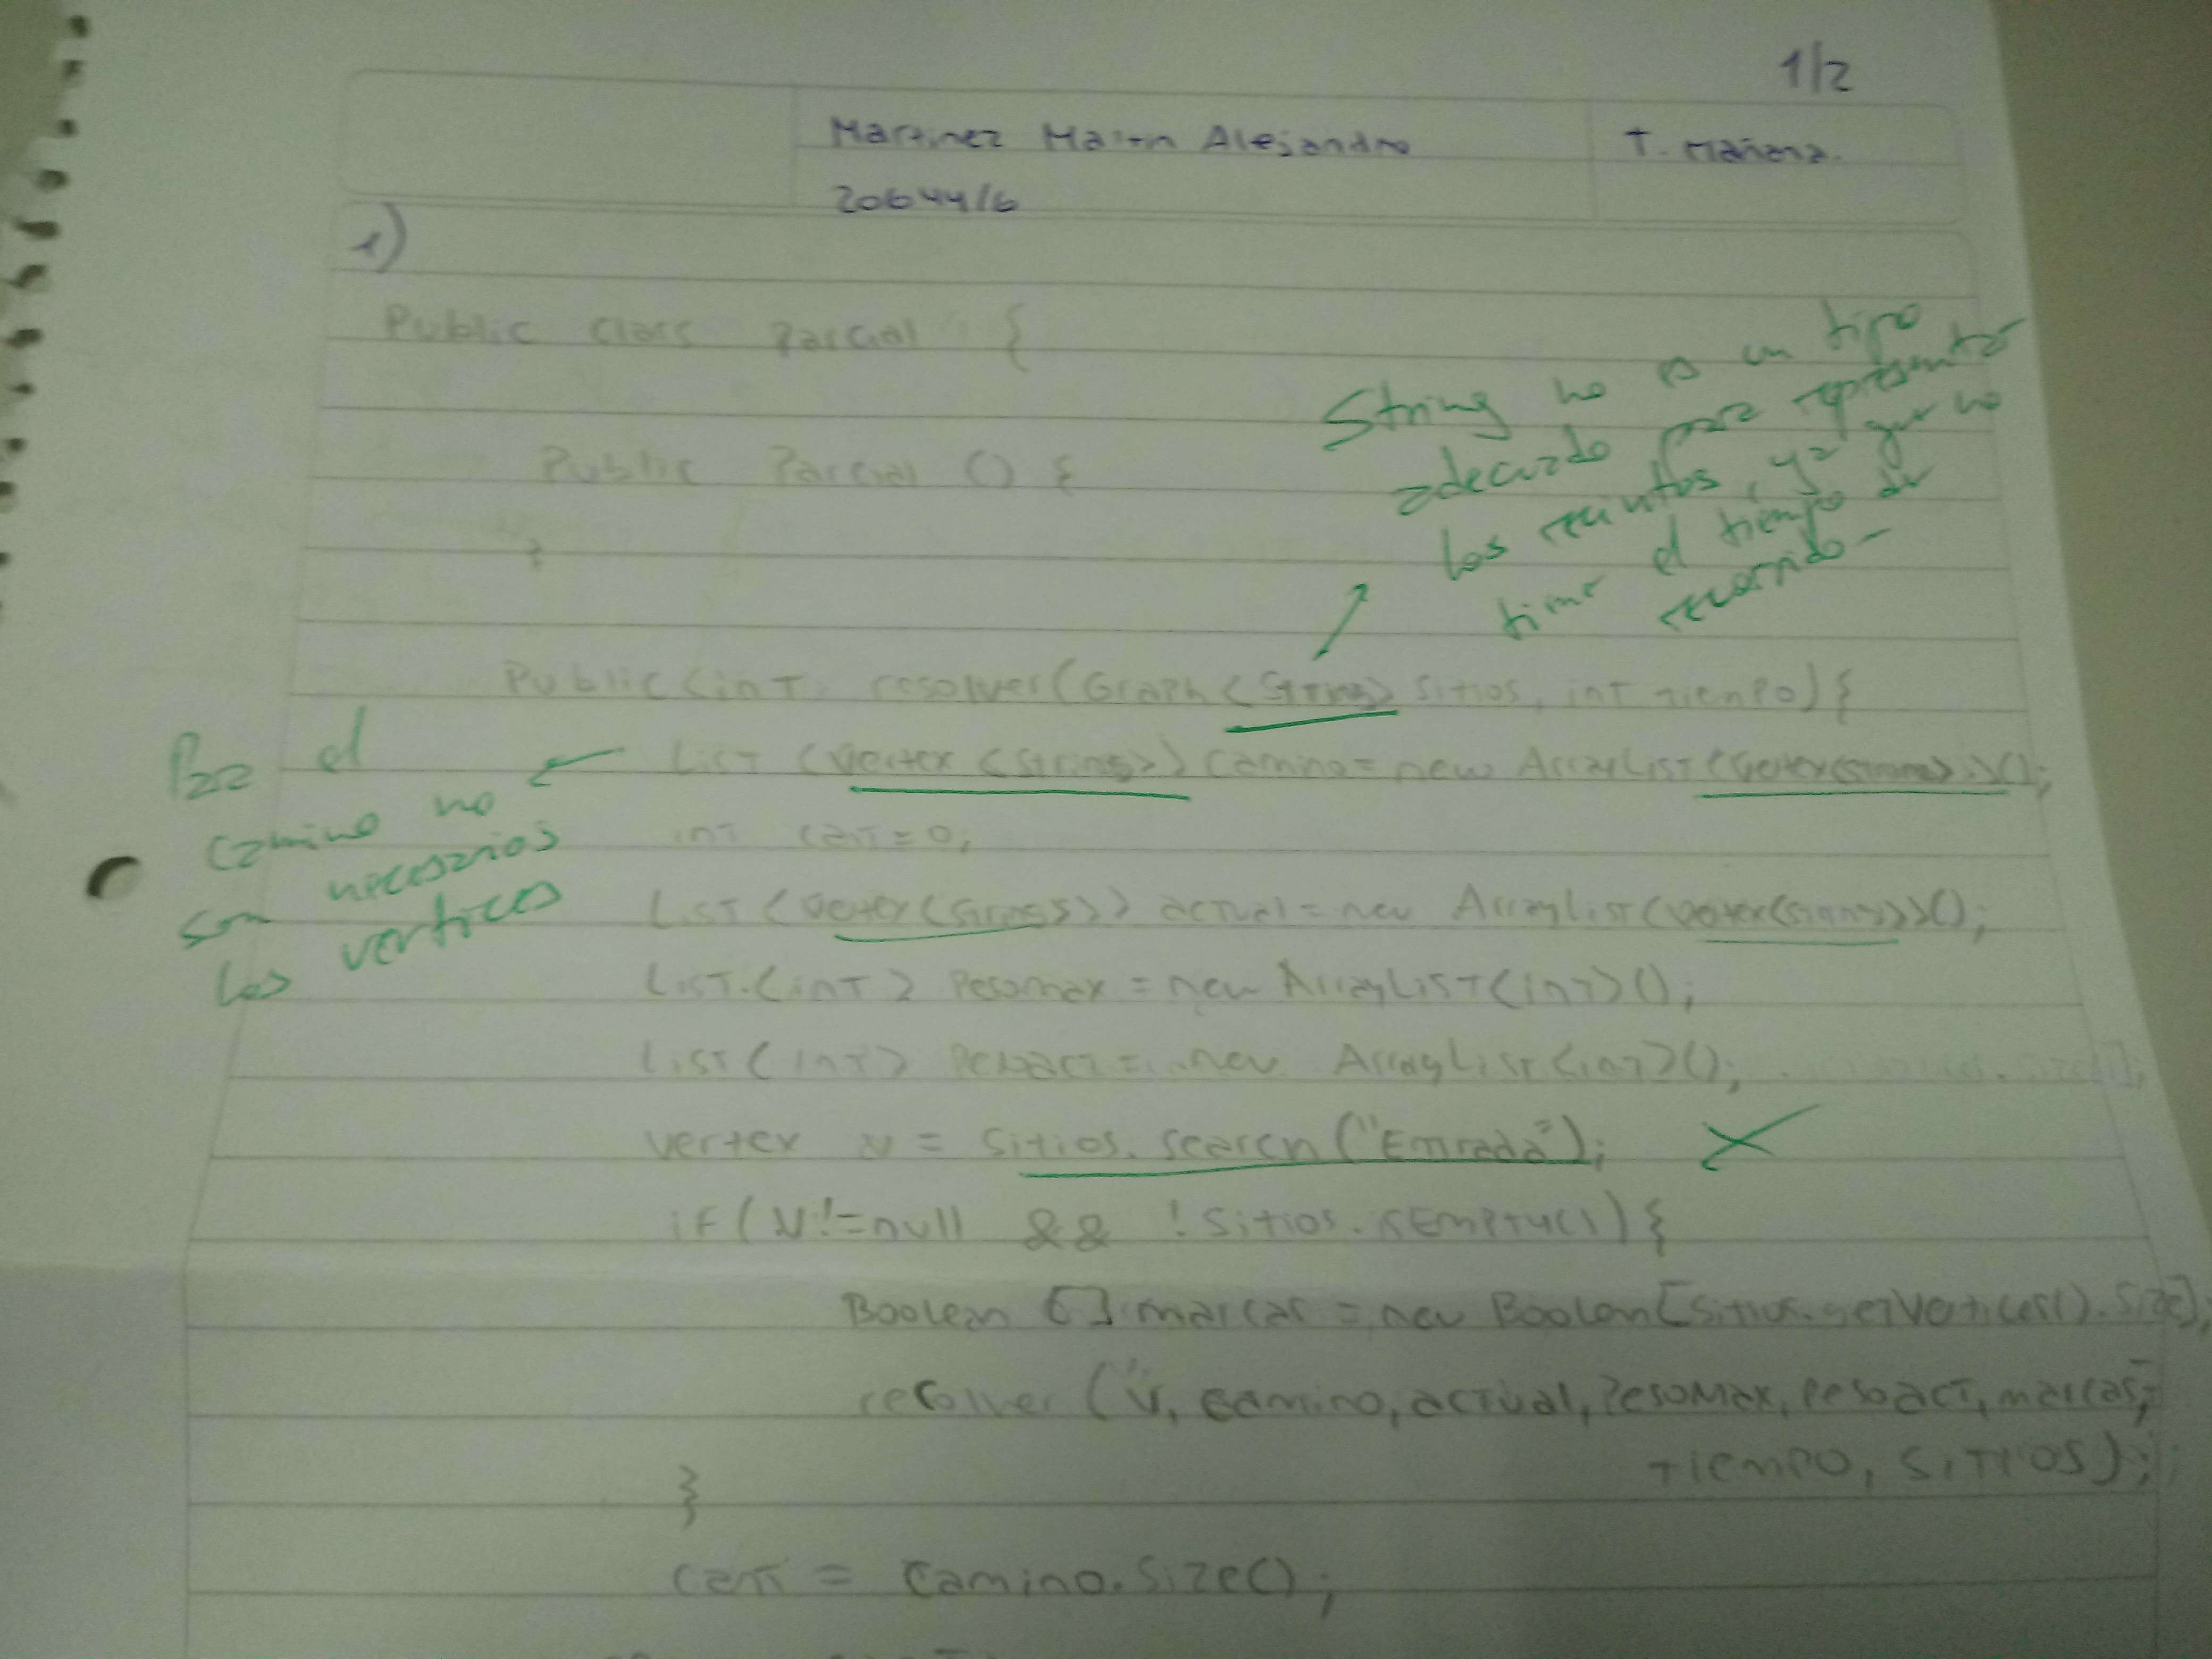 1/2
Martinez Martin Alejandro
T. Mañana.
20644/6
1)
Public class Parcial {
Public Parcial () {
}
String no es un tipo
adecuado para representar
los recintos, ya que no
tiene el tiempo de
recorrido-
Public int resolver(Graph<String> sitios, int tiempo){
List <Vertex <String>> camino = new ArrayList<Vertex<String>>();
Para el
camino no
son necesarios
los vertices
int cant = 0;
List <Vertex<String>> actual = new ArrayList<Vertex<String>>();
List<int> Pesomax = new ArrayList<int>();
List<int> Pesoact = new ArrayList<int>();
vertex v = sitios.search("Entrada");
if(V!=null && !sitios.isEmpty()){
Boolean []marcas = new Boolean[sitios.getVertices().size],
resolver (v, camino, actual, PesoMax, pesoact, marcas,
tiempo, sitios);
}
cant = camino.size();